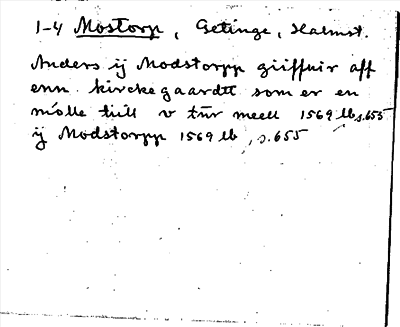 1-4 Mostorp, Getinge, Halmst.
Anders ij Modstorpp giiffuir aff
enn kirckegaardtt som er en
mólle till v tür meell 1569 lb, s.655
ij Modstorpp 1569 lb, s.655